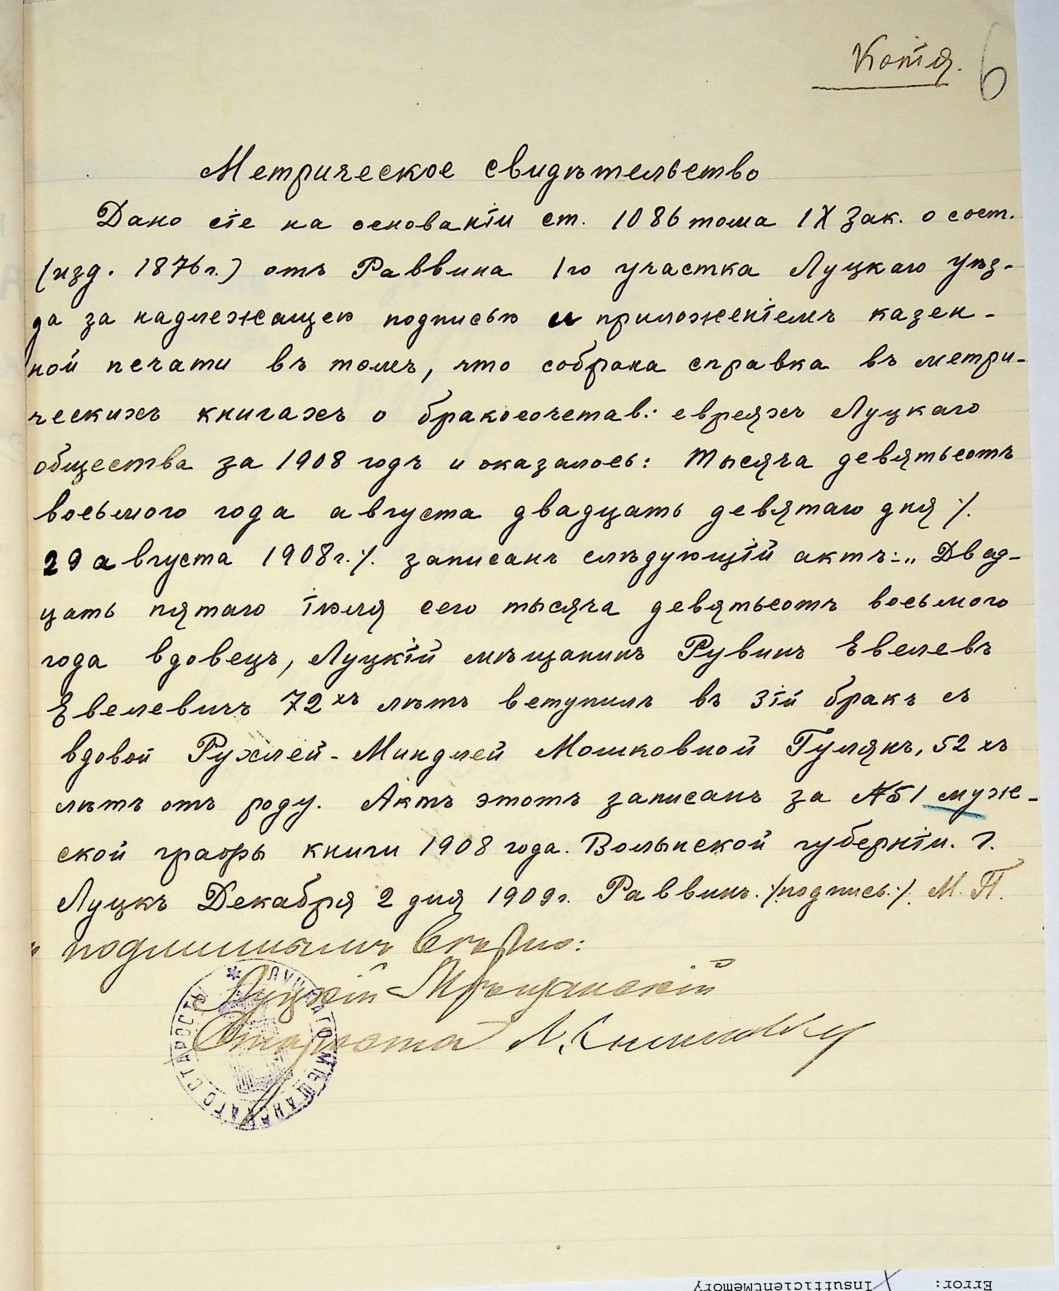 Копія.
6
Метрическое свидѣтельство
Дано сіе на основаніи ст. 1086 тома IX Зак. о сост.
(изд. 1876 г.) отъ Раввина 1го участка Луцкаго уѣз-
да за надлежащею подписью и приложеніемъ казен-
ной печати въ томъ, что собрана справка въ метри-
ческихъ книгахъ о бракосочетав.: евреяхъ Луцкаго
общества за 1908 годъ и оказалось: Тысяча девятьсотъ
восьмого года августа двадцать девятаго дня /.
29 августа 1908 г./. записанъ слѣдующій актъ: „Двад-
цать пятаго іюля сего тысяча девятьсотъ восьмого
года вдовецъ, Луцкій мѣщанинъ Рувинъ Евелевъ
Евелевичъ 72хъ лѣтъ вступилъ въ 3ій бракъ съ
вдовой Рухлей-Миндлей Мошковной Гулянъ, 52 хъ
лѣтъ отъ роду. Актъ этотъ записанъ за №51 муж-
ской графы книги 1908 года. Волынской губерніи. г.
Луцкъ Декабря 2 дня 1909 г. Раввинъ /подпись:/. М. П.
подлиннымъ вѣрно:
Луцкій Мѣщанскій
Староста
ЛУЦКАГО МѢЩАНСКАГО СТАРОСТЫ
Error: InsufficientMemory